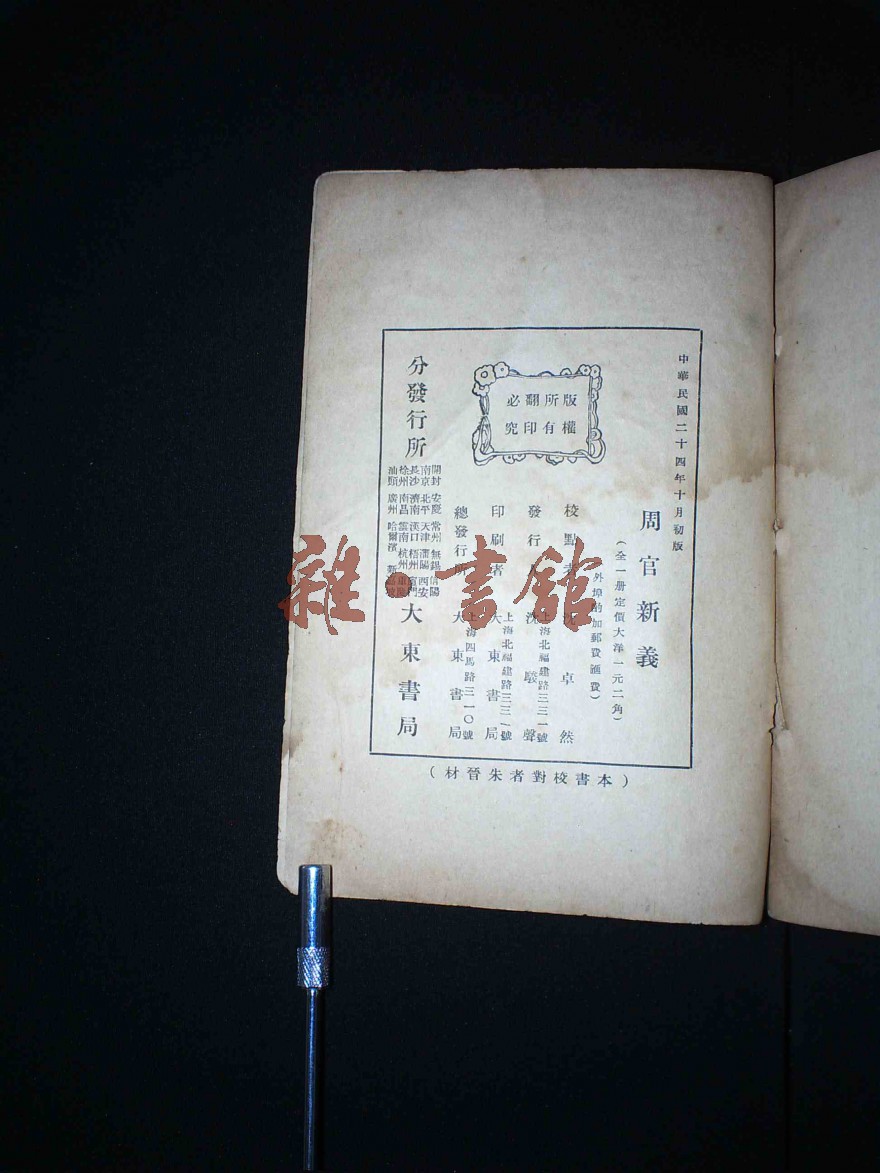 中華民國二十四年十月初版
周官新義
(全一册定價大洋一元二角)
(外埠酌加郵費匯費)
版權
所有
翻印
必究
校點者 沈卓然
發行人 沈駿聲
上海北福建路三三一號
印刷者 大東書局
上海北福建路三三一號
總發行所 大東書局
上海四馬路三一〇號
分發行所
開封 安慶 常州 無錫
南京 北平 天津 瀋陽 西安
長沙 濟南 漢口 梧州 廈門
徐州 南昌 雲南 杭州 重慶
汕頭 廣州 哈爾濱
大東書局
(本書校對者朱晉材)
雜·書館